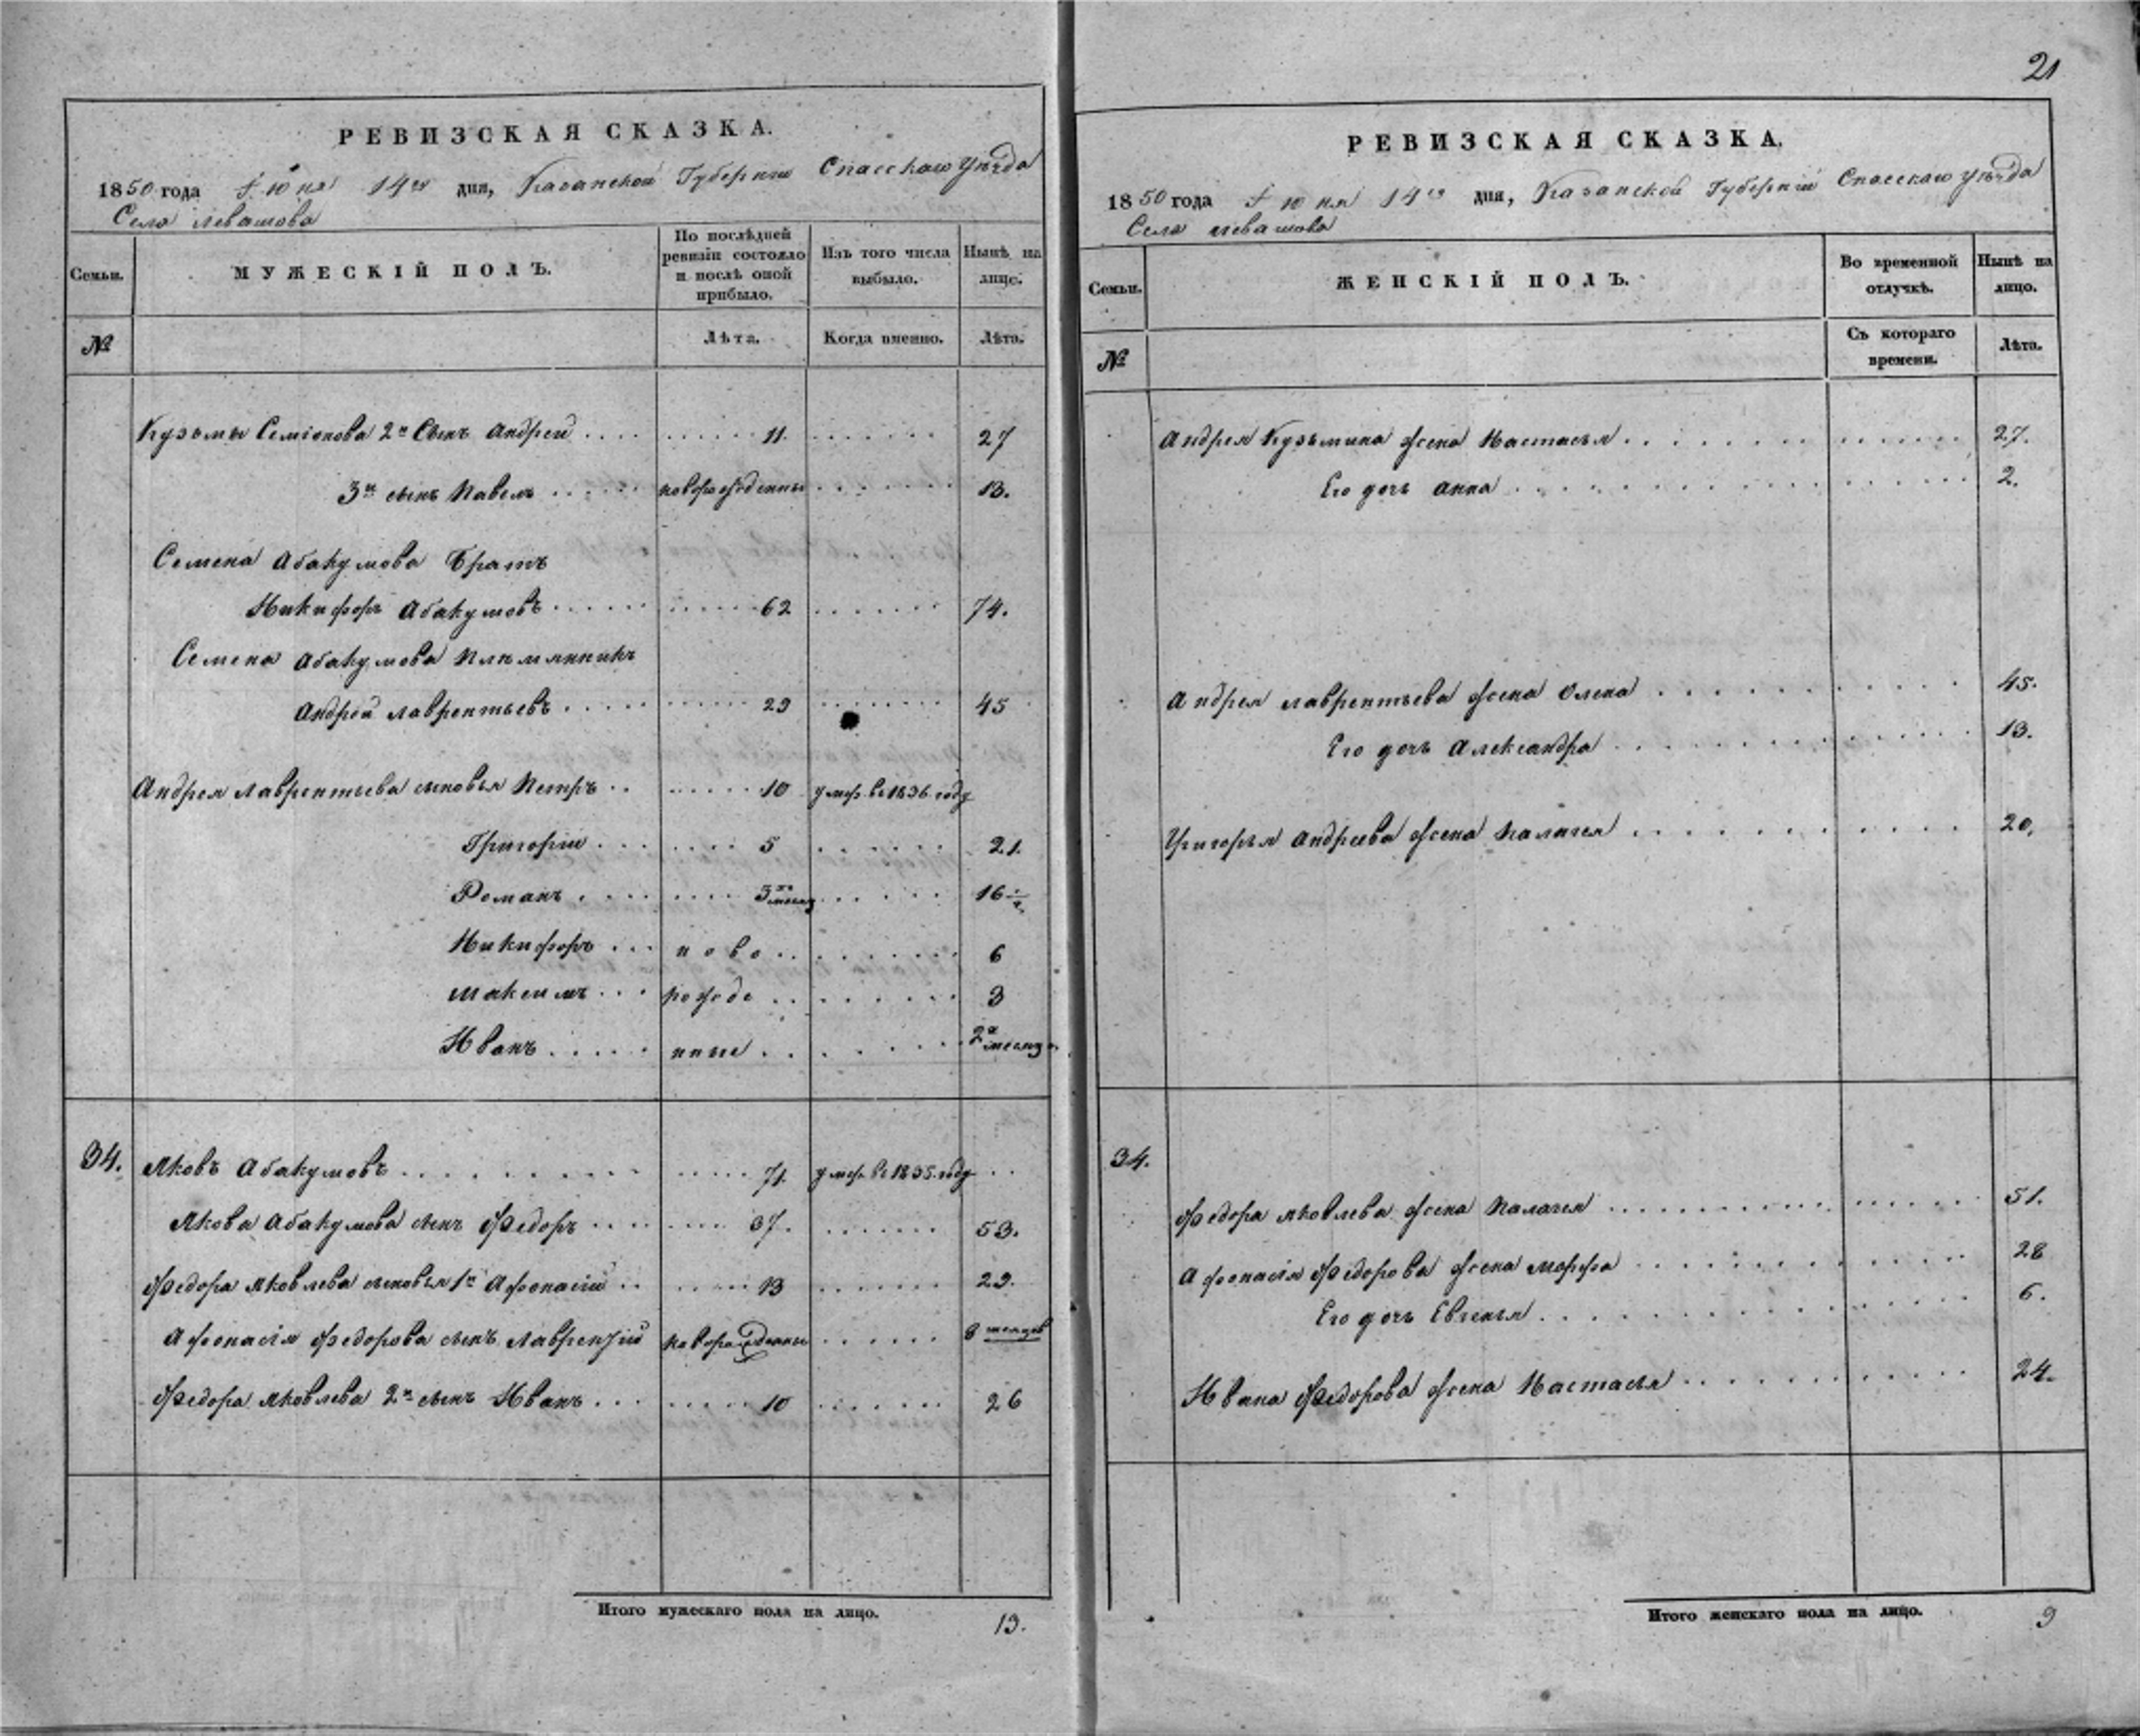 РЕВИЗСКАЯ СКАЗКА.
1850 года Іюня 14го дня, Казанской Губерніи Спасскаго уѣзда
Села Левашова
Семьи.
МУЖЕСКІЙ ПОЛЪ.
По послѣдней ревизіи состояло и послѣ оной прибыло.
Изъ того числа выбыло.
Нынѣ на лице.
№
Лѣта.
Когда именно.
Лѣта.
Кузьмы Семіонова 2й Сынъ Андрей 11. 27
3й сынъ Павелъ новорожденны 13.
Семена Абакумова братъ
Никифоръ Абакумовъ 62 74.
Семена Абакумова племянникъ
Андрей Лаврентьевъ 29 45
Андрея Лаврентьева сыновья Петръ 10 умер. въ 1836 году
Григорій 5 21.
Романъ 3хъ месяц 16
Никифоръ ново 6
Максимъ рожде 3
Иванъ нные 2а месяца
34. Яковъ Абакумовъ 71. умер. въ 1835 году
Якова Абакумова сынъ Федоръ 37. 53.
Федора Яковлева сыновья 1й Афонасій 13 29.
Афонасія Федорова сынъ Лаврентій новорожденны 8 месяцов
Федора Яковлева 2й сынъ Иванъ 10 26
Итого мужескаго пола на лицо. 13.
21
РЕВИЗСКАЯ СКАЗКА.
1850 года Іюня 14го дня, Казанской Губерніи Спасскаго уѣзда
Села Левашова
Семьи.
ЖЕНСКІЙ ПОЛЪ.
Во временной отлучкѣ.
Нынѣ на лицо.
№
Съ котораго времени.
Лѣта.
Андрея Кузьмина жена Настасья 27.
Его дочь Анна 2.
Андрея Лаврентьева жена Олена 45.
Его дочь Александра 13.
Григорья Андреева жена Палагея 20.
34.
Федора Яковлева жена Палагея 51.
Афонасія Федорова жена Марфа 28
Его дочь Евгенья 6.
Ивана Федорова жена Настасья 24.
Итого женскаго пола на лицо. 9